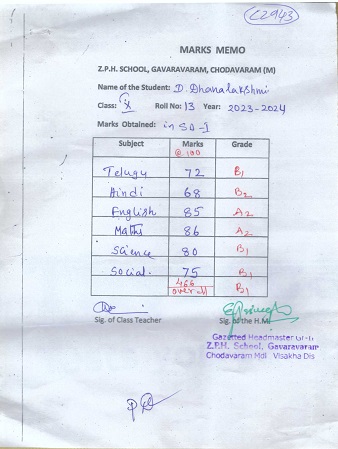 C2943
MARKS MEMO
Z.P.H. SCHOOL, GAVARAVARAM, CHODAVARAM (M)
Name of the Student: D. Dhanalakshmi
Class: X Roll No: 13 Year: 2023-2024
Marks Obtained: in SA-1
Subject Marks Grade
@ 100
Telugu 72 B1
Hindi 68 B2
English 85 A2
Maths 86 A2
Science 80 B1
Social. 75 B1
466
over all B1
Sig. of Class Teacher Sig. of the H.M
Gazetted Headmaster Gr-II
Z.P.H. School, Gavaravaram
Chodavaram Mdl Visakha Dis